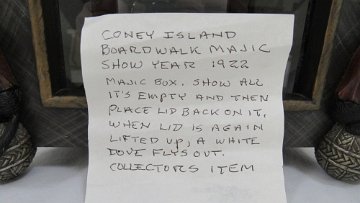 CONEY ISLAND
BOARDWALK MAJIC
SHOW YEAR 1922
MAJIC BOX. SHOW ALL
IT'S EMPTY AND THEN
PLACE LID BACK ON IT.
WHEN LID IS AGAIN
LIFTED UP, A WHITE
DOVE FLYS OUT.
COLLECTORS ITEM